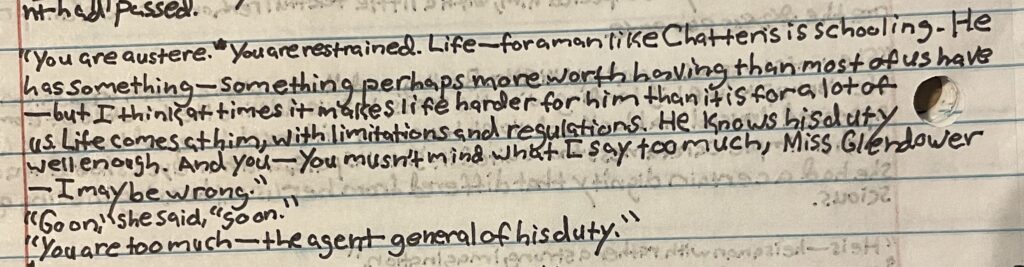 nt had passed.
"You are austere. "You are restrained. Life—for a man like Chatteris is schooling. He
has something—something perhaps more worth having than most of us have
—but I think at times it makes life harder for him than it is for a lot of
us. Life comes at him, with limitations and regulations. He knows his duty
well enough. And you—You musn't mind what I say too much, Miss Glendower
—I may be wrong."
"Go on," she said, "go on."
"You are too much—the agent general of his duty."